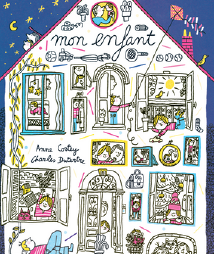 mon enfant
Anne Cortey
Charles Dutertre